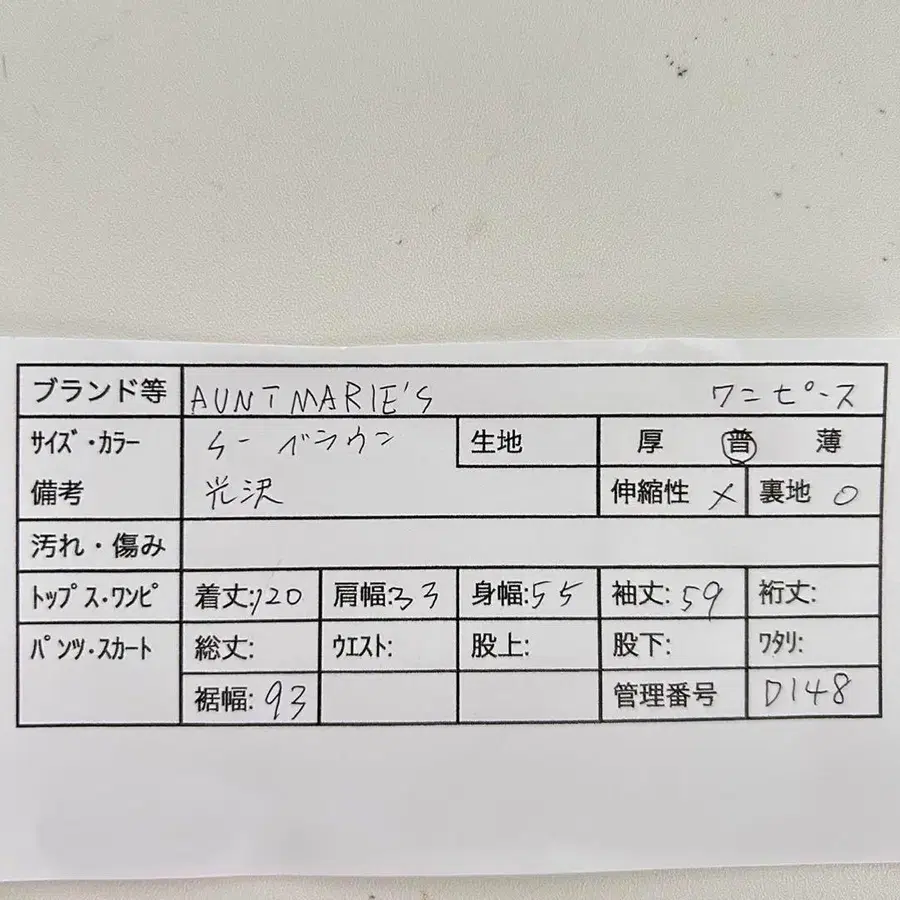 ブランド等 AUNT MARIE'S ワンピース
サイズ・カラー ブラウン 生地 厚 普 薄
備考 光沢 伸縮性 × 裏地 ○
汚れ・傷み
トップス・ワンピ 着丈:120 肩幅:33 身幅:55 袖丈:59 裄丈:
パンツ・スカート 総丈: ウエスト: 股上: 股下: ワタリ:
裾幅: 93 管理番号 D148